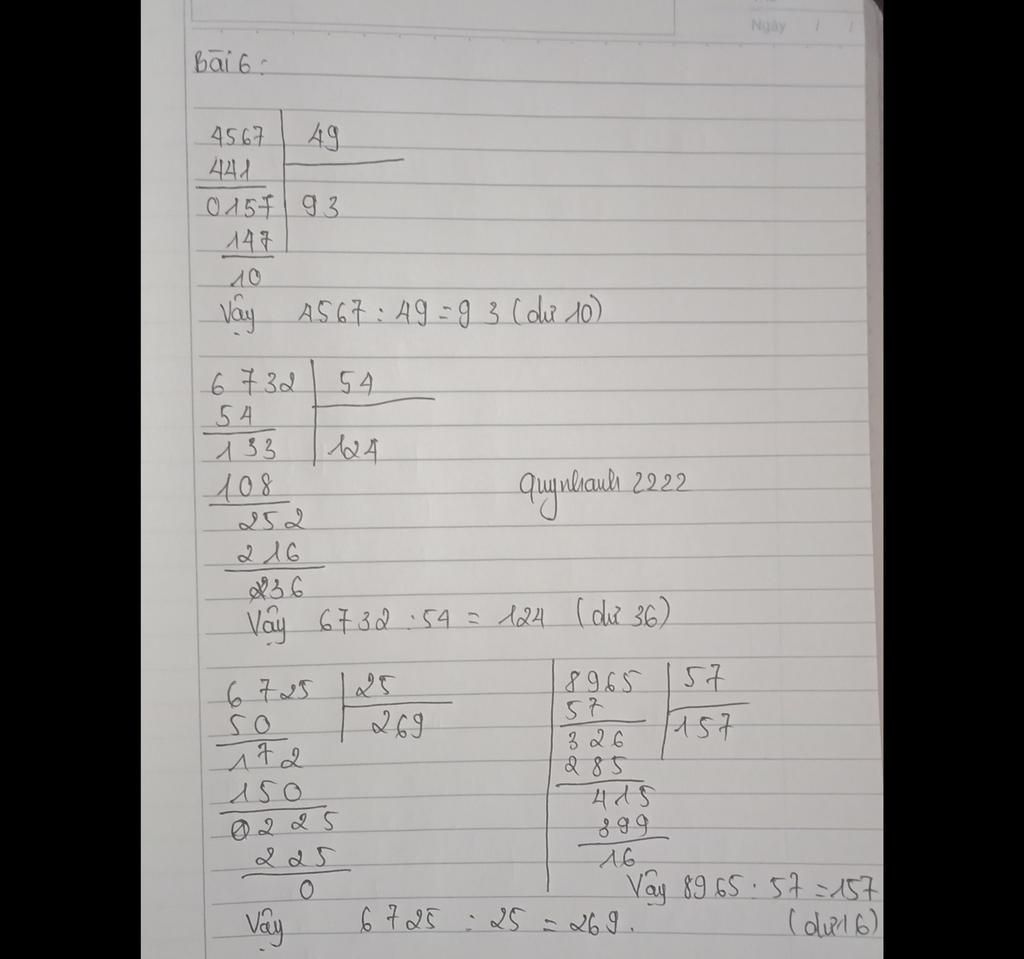 Ngày / /
Bài 6:
4567 49
441
0157 93
147
10
Vậy 4567 : 49 = 93 (dư 10)
6732 54
54
133 124
108
252
216
36
Quynhanh 2222
Vậy 6732 : 54 = 124 (dư 36)
6725 25
50 269
172
150
0225
225
0
Vậy 6725 : 25 = 269.
8965 57
57 157
326
285
415
399
16
Vậy 8965 : 57 = 157
(dư 16)